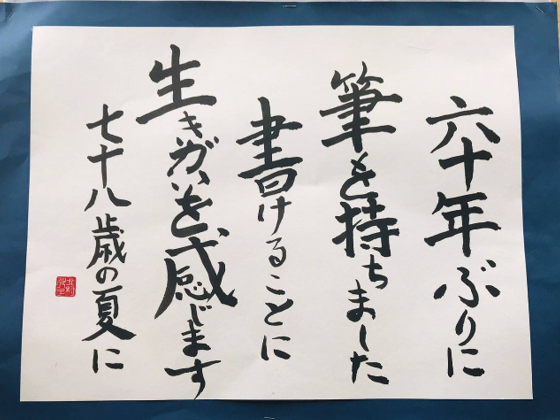 六十年ぶりに
筆を持ちました
書けることに
生きがいを感じます
七十八歳の夏に